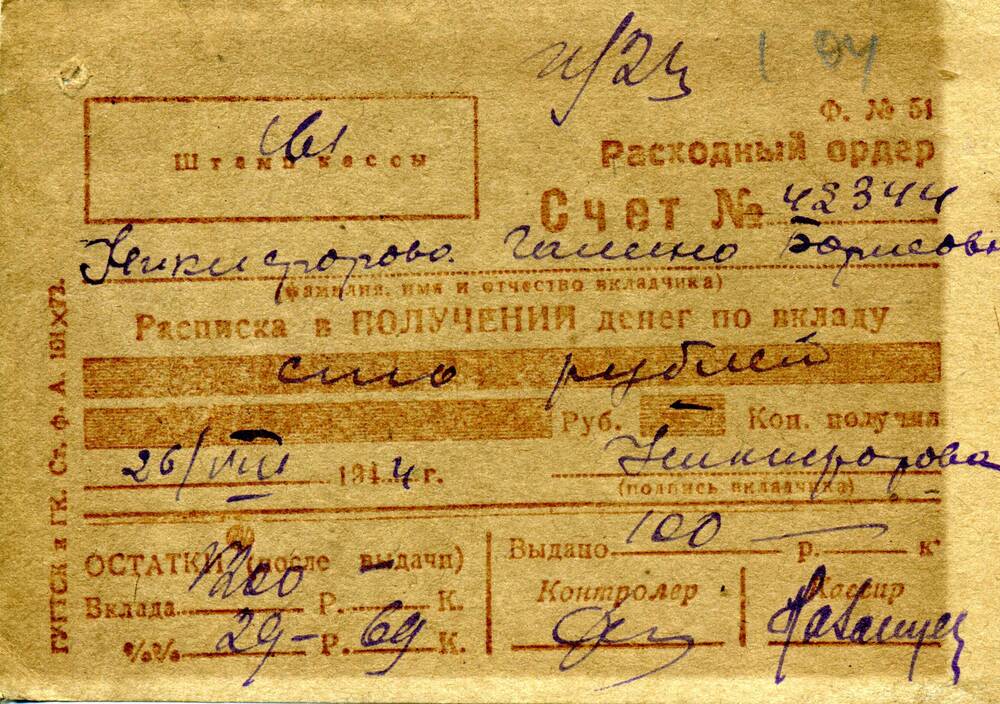 1 04
Ф. № 51
Штамп кассы
Расходный ордер
Счет № 42344
Никифорова Галина Борисовн
(фамилия, имя и отчество вкладчика)
Расписка в ПОЛУЧЕНИИ денег по вкладу
сто рублей
Руб. — Коп. получил
26/VIII 1944 г. Никифорова
(подпись вкладчика)
ОСТАТКИ (после выдачи)
Выдано 100 — р. к
Вклада 1200 — Р. К.
Контролер Кассир
%% 29 — Р. 69 К.
ГУГТСК и ГК. Ст. ф. А. 161Х72.